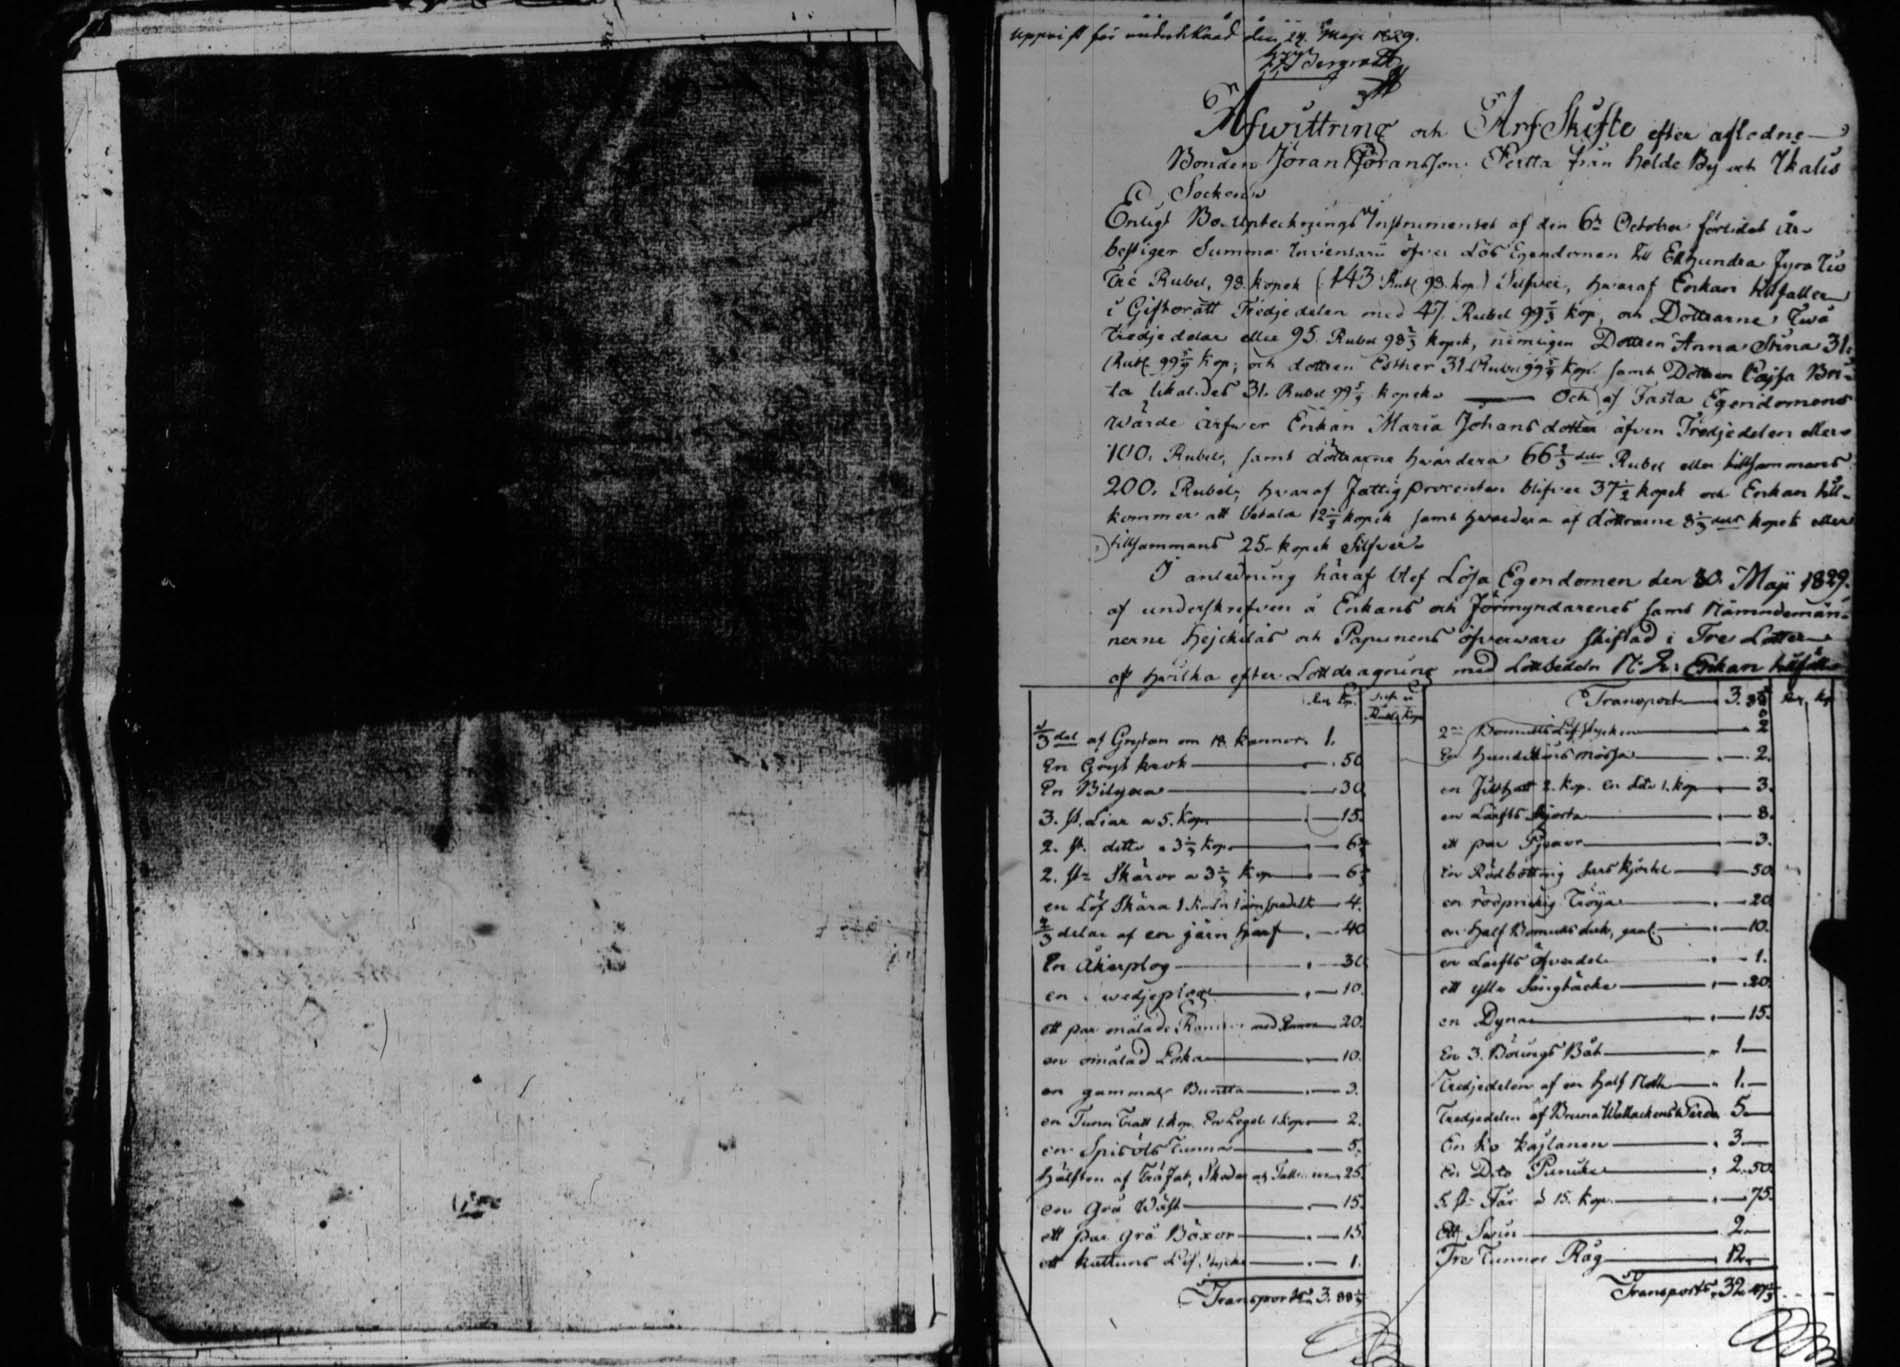 Uppvist för underskrifvad den 29. Maji 1829.
Afwittring och ArfSkifte efter aflidne
Bonden Jöran Jöransson Pertta från Helde By och Ikalis
Socken
Enligt Bo-Upteckning's Instrumentet af den 6te October förlidet år
bestiger Summa Inventarii öfver Lös Egendomen till Ett hundra fyra tio
Tre Rubel, 98 kopek (143 Rubl 98. kop.) Silfver, hvaraf Enkan tillfaller
i Giftorätt Tredjedelen med 47. Rubel 99 1/3 kop, och Döttrarne, Två
tredjedelar eller 95. Rubel 98 2/3 kopek, nemligen Dottren Anna Stina 31.
Rubl. 99 5/9 kop; och dottren Esther 31 Rubel 99 5/9 kop. samt Dottren Cajsa Bri-
ta likaledes 31. Rubel 99 5/9 kopek. Och af Fasta Egendomens
Wärde ärfver Enkan Maria Johansdotter äfven Tredjedelen eller
100. Rubel, samt döttrarne hvardera 66 2/3 delar Rubel eller tillsammans
200. Rubel, hvaraf Fattigprocenten blifver 37 1/2 kopek och Enkan till-
kommer att betala 12 1/2 kopek samt hvardera af döttrarne 8 1/3 dels kopek eller
tillsammans 25 kopek Silfver.
I anledning häraf blef Lösa Egendomen den 30. Maji 1829.
af underskrefven å Enkans och Förmyndarenes samt Nämndemän-
nerne Hejckiläs och Papinens öfverwaro skiftad i Tre Lotter
af hvilka efter Lottdragning med Lottsedeln N:o 2: Enkan tillföll
1/3 del af Grytan om 18. kannor 1.
En Gryt krok 50
En Bilyxa 30
3. st. Liar a 5. kop 15.
2. st. ditto a 3 1/3 kop 6 2/3
2. st. Skäror a 3 1/3 kop 6 2/3
en Löf Skära 4.
2/3 delar af en järn härf 40
En Åkerplog 30
en wedjeplog 10.
ett par omålade med 20.
en omålad 10.
en gammal Buntta 3.
en Tunn Tratt 1. kop. En Legel 1 kop 2.
en Spisöls Tunna 5.
Hälften af Trä Fat, Skedar 25.
en Grå Wäst 15.
ett par grå Böxor 15.
ett kattuns Lif stycke 1.
Transport 3. 88 1/3
Transport 3. 88 1/3
2ne Bomulls Lifstycken 2
En Hundskins mössa 2.
en Filthatt 2. kop. en dito 1. kop 3.
en Lärfts Skjorta 8.
ett par 3.
En Rödbottnig Sars kjortel 50
en rödprickig Tröya 20
en Half Bomulls duk, gaml. 10.
en Lärfts öfverdel 1.
ett ylle Sängtäcke 20.
en Dyna 15.
En 3. Bölings Båt 1
Tredjedelen af en half Noth 1.
Tredjedelen af Bruna Wallackens Wärde 5
En ko Kajlanen 3
En Dito Punike 2. 50.
5. st. Får à 15. kop. 75.
Ett Swin 2
Tre Tunnor Råg 12.
Transport 32. 47 1/3